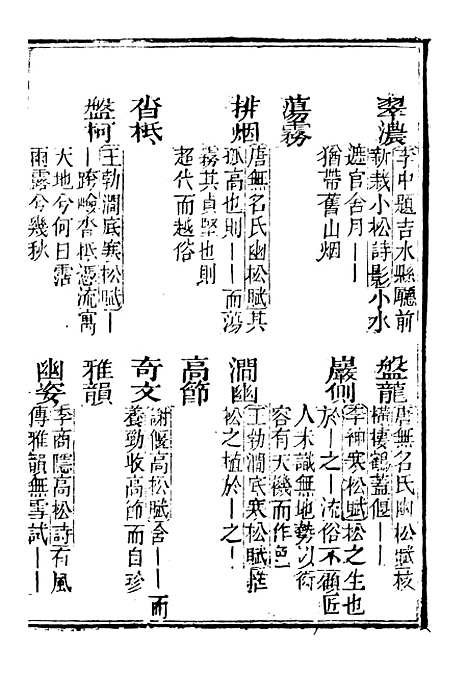 翠濃
李中題吉水縣廳前
新栽小松詩影小水
遮官舍月——
猶帶舊山烟
蕩霧
排烟
唐無名氏幽松賦其
孤高也則——而蕩
霧其貞堅也則
超代而越俗
沓柢
盤柯
王勃澗底寒松賦——
—跨嶮沓柢憑流寓
天地兮何日霑
雨露兮幾秋
盤龍
唐無名氏幽松賦枝
橫棲鶴蓋偃——
巖側
李紳寒松賦松之生也
於—之—流俗不顧匠
人未識無地勢以衒
容有天機而作色
澗幽
王勃澗底寒松賦惟
松之植於—之—
高節
奇文
謝偃高松賦含——而
養勁收高節而自珍
雅韻
幽姿
李商隱高松詩有風
傳雅韻無雪試——